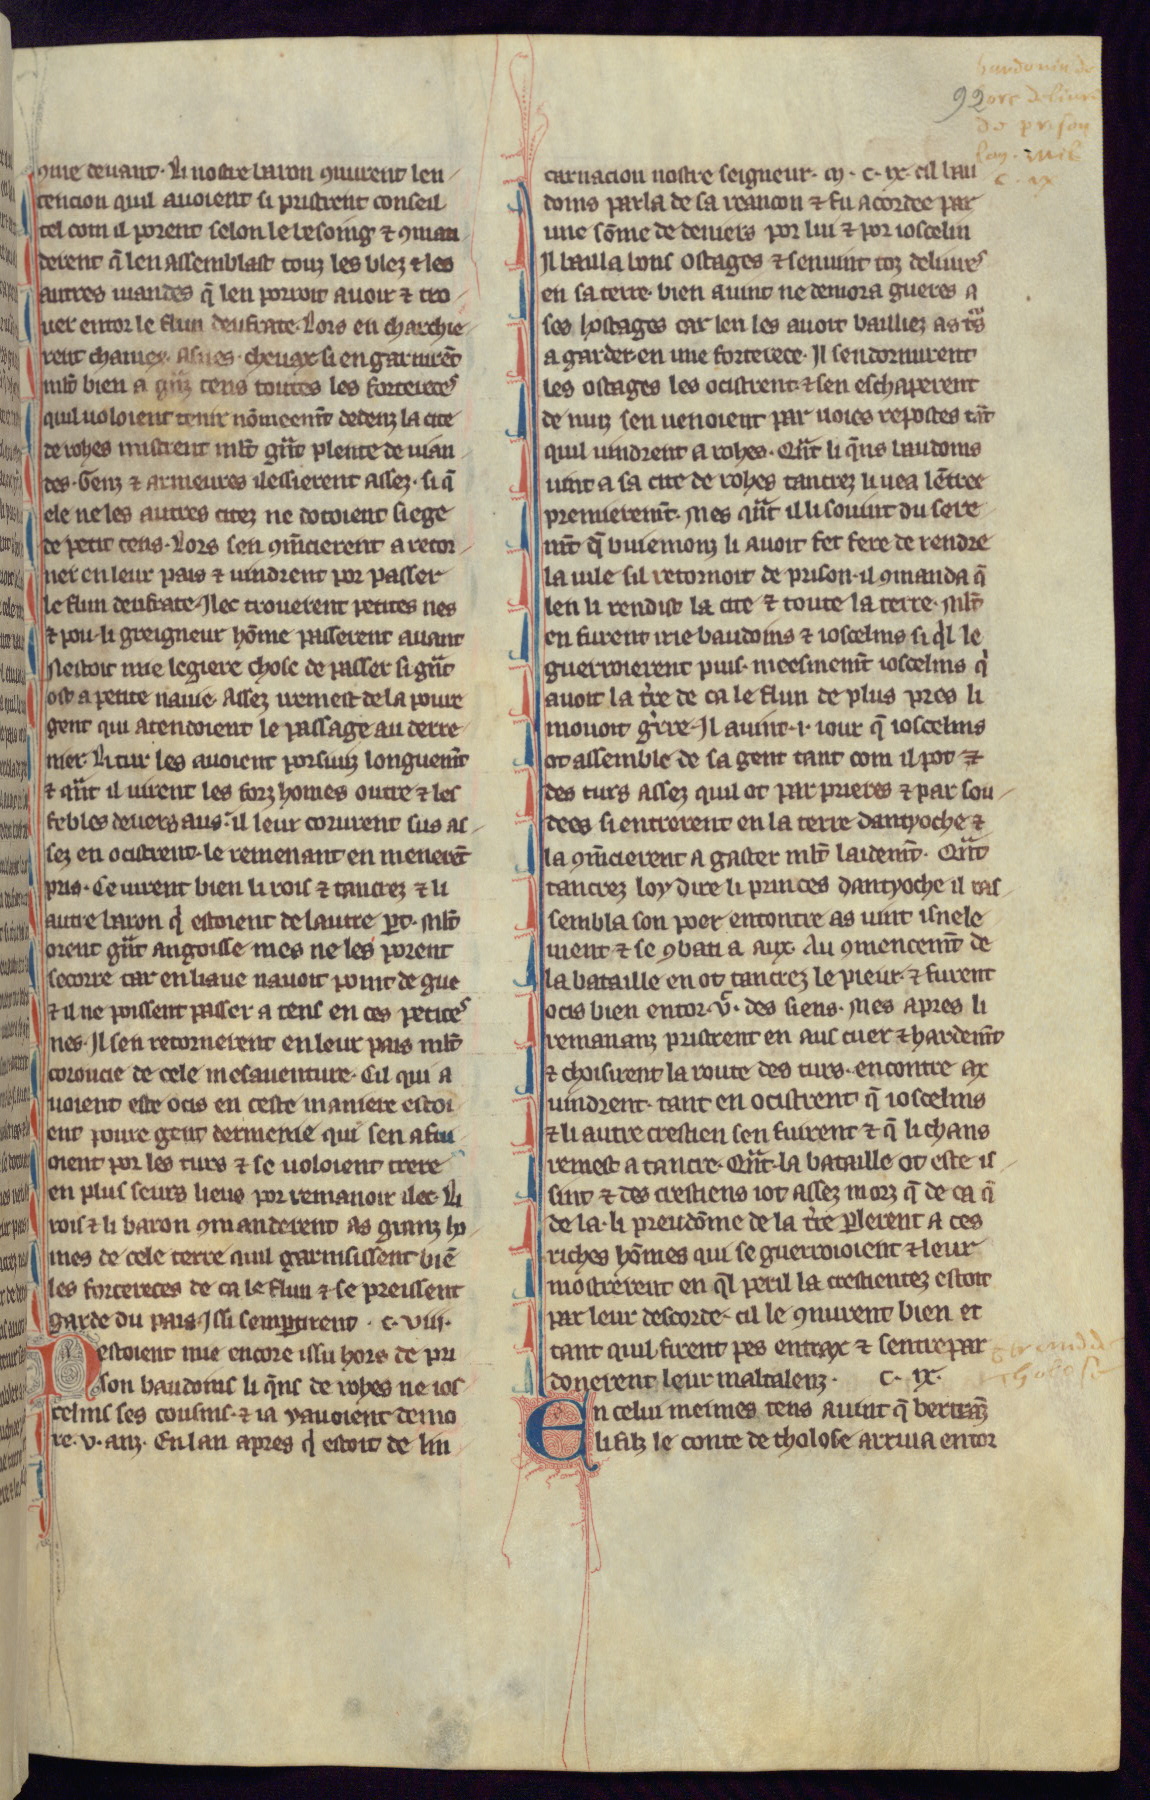 ꝯme deuant. Li nostre baron ꝯnurent len
tencion quil auoient si pristrent conseil
tel com il porent selon le besoing ⁊ ꝯman
derent q̄ len assemblast touz les blez ⁊ les
autres uiandes q̄ len porroit auoir ⁊ tro
uer entor le flun deufrate. Lors en charchie
rent chamex. Asnes. cheuax si en garnirēt
ml̄t bien a grāz tens toutes les forteleces
quil uoloient tenir nōmeemt̄ dedenz la cite
de rohes mistrent ml̄t grāt plente de uian
des. Genz ⁊ armeures ilessierent assez. si q̄
ele ne les autres citez ne dotoient siege
de petit tens. Lors sen ꝯm̄cierent a retor
ner en leur pais ⁊ uindrent por passer
le flun deufrate. Ilec trouerent petites nes
⁊ pou. li greigneur hōme passerent auant
Nestoit mie legiere chose de passer si grāt
ost a petite nauie. Assez remest de la poure
gent qui atendoient le passage au derre
nier. Li tur les auoient porsuiz longuemt̄
⁊ qn̄t il uirent les forz homes outre ⁊ les
febles deuers aus. il leur corurent sus as
sez en ocistrent. le remenant en menerēt
pris. Ce uirent bien li rois ⁊ tancrez ⁊ li
autre baron qͥ estoient de lautre ꝑt. Ml̄t
orent grāt angoisse mes ne les porent
secorre car en liaue nauoit point de gue
⁊ il ne poissent passer a tens en ces petites
nes. Il sen retornerent en leur pais ml̄t
coroucie de cele mesauenture. Cil qui a
uoient este ocis en ceste maniere estoi
ent poure gent dermenie qui sen afui
oient por les turs ⁊ se uoloient trere
en plus seurs lieus por remanoir ilec. Li
rois ⁊ li baron ꝯmanderent as granz ho
mes de cele terre quil garnisissent biē
les fortereces de ca le flun ⁊ se preissent
garde du pais. Issi semꝑtirent. c. viii.
Nestoient mie encore issu hors de pri
son baudoins li q̄ns de rohes ne ios
celins ses cousins. ⁊ ia yauoient demo
re. v. anz. En lan apres qͥ estoit de lin
carnacion nostre seigneur. m. c. ix. cil bau
doins parla de sa reancon ⁊ fu acordee par
une sōme de deniers por lui ⁊ por ioscelin
Il baula bons ostages ⁊ senuint toz deliures
en sa terre. bien auint ne demora gueres a
ses hostages car len les auoit bailliez as t̄s
a garder en une forterece. Il sendormirent
les ostages les ocistrent. ⁊ sen eschaperent
de nuiz sen uenoient par uoies repostes tāt
quil uindrent a rohes. Qn̄t li q̄ns baudoins
uint a sa cite de rohes tancrez li uea lētree
premieremt̄. Mes qn̄t il li souint du sere
mt̄ q̄ buiemonz li auoit fet fere de rendre
la uile sil retornoit de prison. il ꝯmanda q̄
len li rendist la cite ⁊ toute la terre. Ml̄t
en furent irie baudoins ⁊ ioscelins si q̄l le
guerroierent puis. meesmemt̄ ioscelins qͥ
auoit la t̄re de ca le flun de plus pres li
mouoit gͥrre. Il auint. i. iour q̄ ioscelins
ot assemble de sa gent tant com il pot ⁊
des turs assez quil ot par prieres ⁊ par sou
dees si entrerent en la terre dantyoche ⁊
la ꝯm̄cierent a gaster ml̄t laidemt̄. Qn̄t
tancrez loy dire li princes dantyoche il ras
sembla son poer encontre as uint isnele
ment ⁊ se ꝯbati a aux. Au ꝯmencemt̄ de
la bataille en ot tancrez le pieur. ⁊ furent
ocis bien entor. v.ͨ des siens. Mes apres li
remananz pristrent en aus cuer ⁊ hardemt̄
⁊ choisirent la route des turs. encontre ax
uindrent. tant en ocistrent q̄ ioscelins
⁊ li autre crestien sen fuirent ⁊ q̄ li chans
remest a tancre. Qn̄t la bataille ot este is
sint ⁊ des crestiens iot assez morz q̄ de ca q̄
de la. li preudōme de la t̄re ꝑlerent a ces
riches hōmes qui se guerroioient ⁊ leur
mostrerent en q̄l peril la crestientez estoit
par leur descorde. cil le ꝯnurent bien et
tant quil firent pes entrax ⁊ sentrepar
donerent leur maltalenz. c. ix.
En celui meimes tens auint q̄ bertranz
li filz le conte de tholose arriua entor
92
baudouin de
hors deliure
de prison
lan. mil
c. ix
tholose